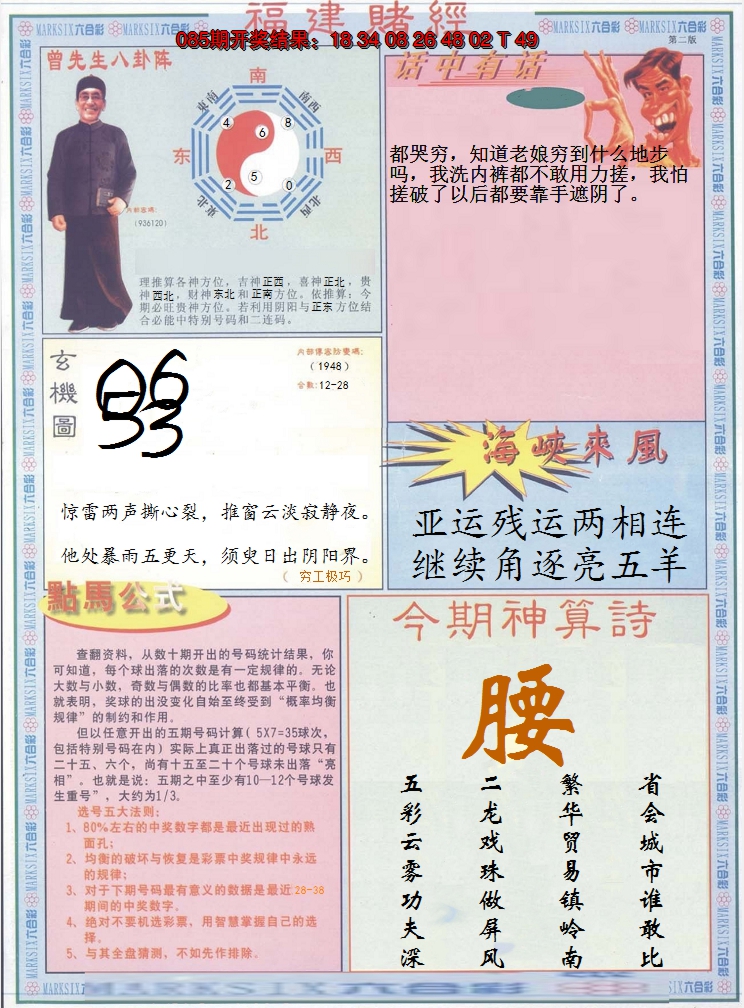 福建賭經
085期开奖结果：18 34 08 26 48 02 T 49
MARKSIX六合彩
第二版
曾先生八卦阵
南
東南
南西
4
8
6
东
西
5
2
0
東北
北西
北
内部密碼：
(936120)
理推算各神方位，吉神正西，喜神正北，贵
神西北，财神东北和正南方位。依推算：今
期必旺贵神方位。若利用阴阳与正东方位结
合必能中特别号码和二连码。
话中有话
都哭穷，知道老娘穷到什么地步
吗，我洗内裤都不敢用力搓，我怕
搓破了以后都要靠手遮阴了。
玄機圖
内部傳密防密碼：
(1948)
合数：12-28
惊雷两声撕心裂，推窗云淡寂静夜。
他处暴雨五更天，须臾日出阴阳界。
（穷工极巧）
海峽來風
亚运残运两相连
继续角逐亮五羊
點馬公式
查翻资料，从数十期开出的号码统计结果，你
可知道，每个球出落的次数是有一定规律的。无论
大数与小数，奇数与偶数的比率也都基本平衡。也
就表明，奖球的出没变化自始至终受到“概率均衡
规律”的制约和作用。
但以任意开出的五期号码计算（5X7=35球次，
包括特别号码在内）实际上真正出落过的号球只有
二十五、六个，尚有十五至二十个号球未出落“亮
相”。也就是说：五期之中至少有10—12个号球发
生重号”，大约为1/3。
选号五大法则：
1、80%左右的中奖数字都是最近出现过的熟
面孔；
2、均衡的破坏与恢复是彩票中奖规律中永远
的规律；
3、对于下期号码最有意义的数据是最近28-38
期间的中奖数字。
4、绝对不要机选彩票，用智慧掌握自己的选
择。
5、与其全盘猜测，不如先作排除。
今期神算詩
腰
五彩云雾功夫深
二龙戏珠做屏风
繁华贸易镇岭南
省会城市谁敢比